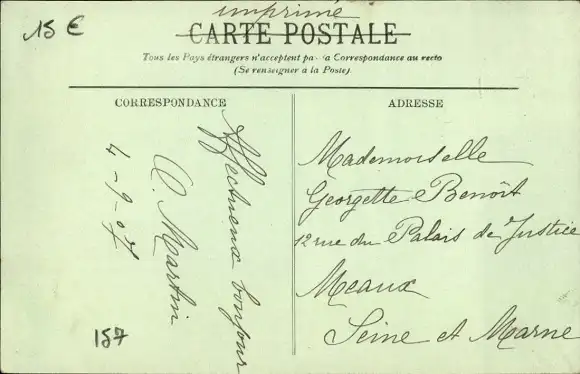 15 €
imprimé
CARTE POSTALE
Tous les Pays étrangers n'acceptent pas la Correspondance au recto
(Se renseigner à la Poste)
CORRESPONDANCE
Affectueux bonjour
A. Martin
4-9-07
157
ADRESSE
Mademoiselle
Georgette Benoît
12 rue du Palais de Justice
Meaux
Seine et Marne